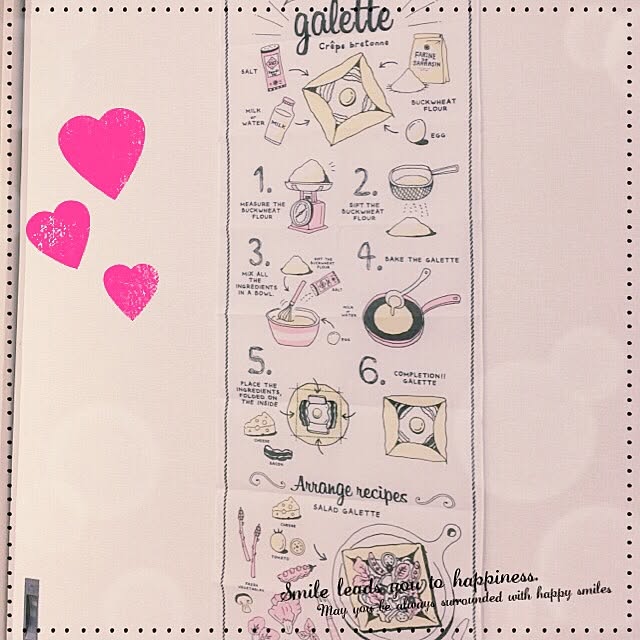 galette
Crêpe bretonne
SALT
FARINE
DE
SARRASIN
MILK
or
WATER
MILK
BUCKWHEAT
FLOUR
EGG
1.
MEASURE THE
BUCKWHEAT
FLOUR
2.
SIFT THE
BUCKWHEAT
FLOUR
3.
MIX ALL
THE
INGREDIENTS
IN A BOWL.
SIFT THE
BUCKWHEAT
FLOUR
SALT
MILK
or
WATER
EGG
4.
BAKE THE GALETTE
5.
PLACE THE
INGREDIENTS,
FOLDED ON
THE INSIDE
CHEESE
BACON
6.
COMPLETION!!
GALETTE
Arrange recipes
SALAD GALETTE
CHEESE
TOMATO
FRESH
VEGETABLES
Smile leads you to happiness.
May you be always surrounded with happy smiles